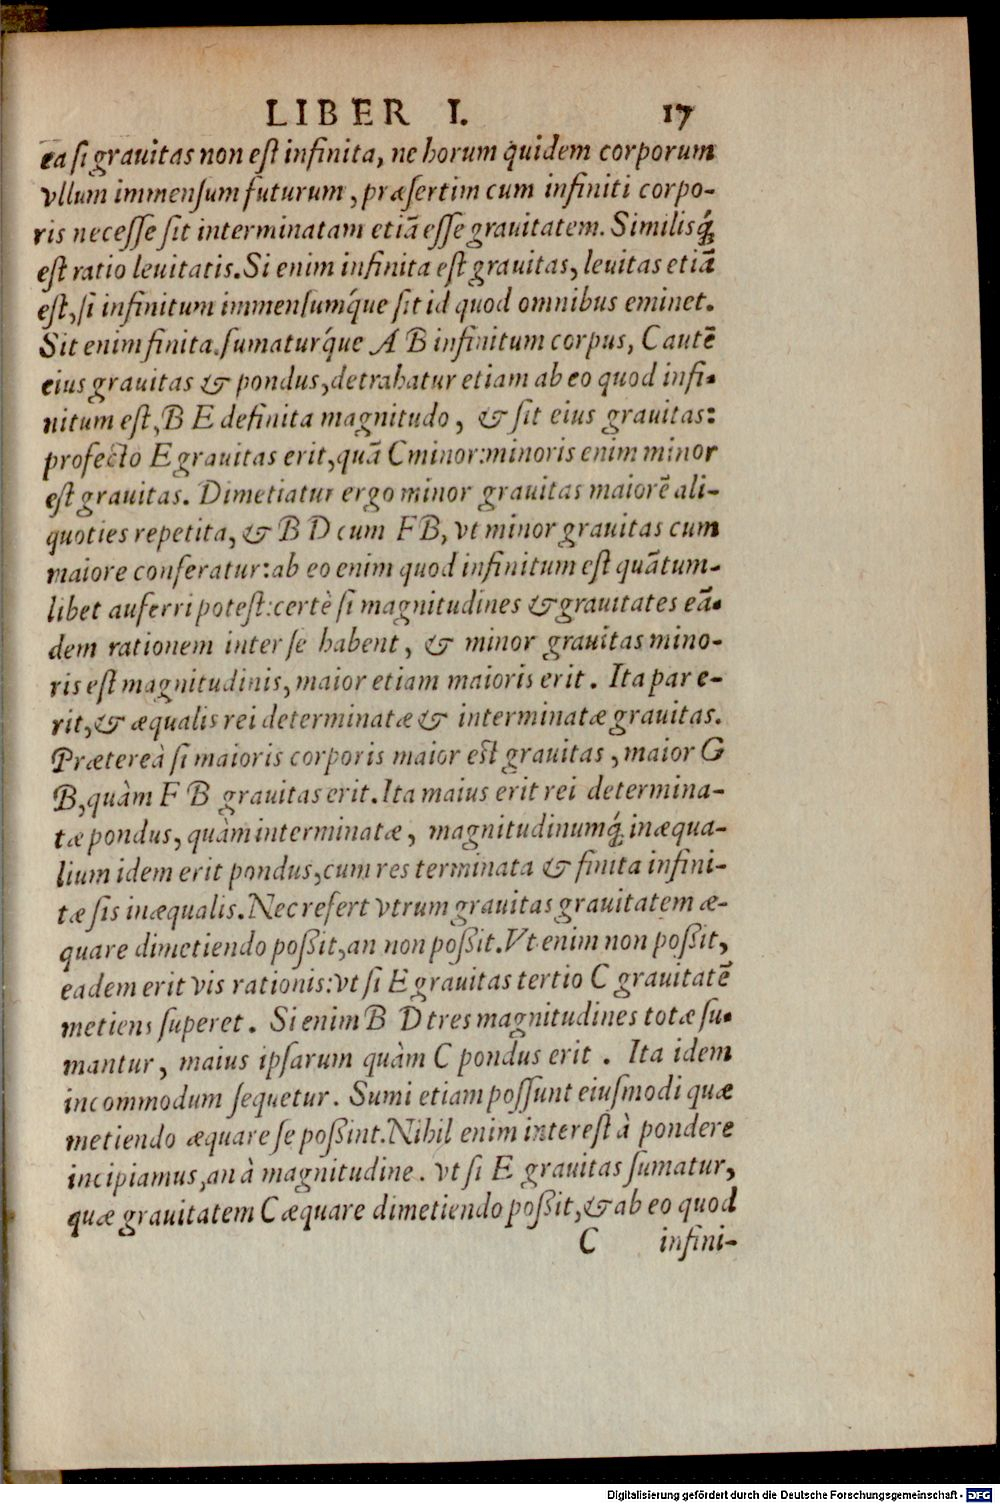 LIBER I. 17
ea si grauitas non est infinita, ne horum quidem corporum
vllum immensum futurum, præsertim cum infiniti corpo-
ris necesse sit interminatam etiā esse grauitatem. Similisq́;
est ratio leuitatis. Si enim infinita est grauitas, leuitas etiā
est, si infinitum immensumq́ue sit id quod omnibus eminet.
Sit enim finita, sumaturq́ue A B infinitum corpus, C autē
eius grauitas & pondus, detrahatur etiam ab eo quod infi-
nitum est, B E definita magnitudo, & sit eius grauitas:
profecto E grauitas erit, quā C minor: minoris enim minor
est grauitas. Dimetiatur ergo minor grauitas maiorē ali-
quoties repetita, & B D cum F B, vt minor grauitas cum
maiore conferatur: ab eo enim quod infinitum est quātum-
libet auferri potest: certè si magnitudines & grauitates eā-
dem rationem inter se habent, & minor grauitas mino-
ris est magnitudinis, maior etiam maioris erit. Ita par e-
rit, & æqualis rei determinatæ & interminatæ grauitas.
Prætereà si maioris corporis maior est grauitas, maior G
B, quàm F B grauitas erit. Ita maius erit rei determina-
tæ pondus, quàm interminatæ, magnitudinumq́; inæqua-
lium idem erit pondus, cum res terminata & finita infini-
tæ sis inæqualis. Nec refert vtrum grauitas grauitatem æ-
quare dimetiendo poßit, an non poßit. Vt enim non poßit,
eadem erit vis rationis: vt si E grauitas tertio C grauitatē
metiens superet. Si enim B D tres magnitudines totæ su-
mantur, maius ipsarum quàm C pondus erit. Ita idem
incommodum sequetur. Sumi etiam possunt eiusmodi quæ
metiendo æquare se poßint. Nihil enim interest à pondere
incipiamus, an à magnitudine. vt si E grauitas sumatur,
quæ grauitatem C æquare dimetiendo poßit, & ab eo quod
C infini-
Digitalisierung gefördert durch die Deutsche Forschungsgemeinschaft - DFG